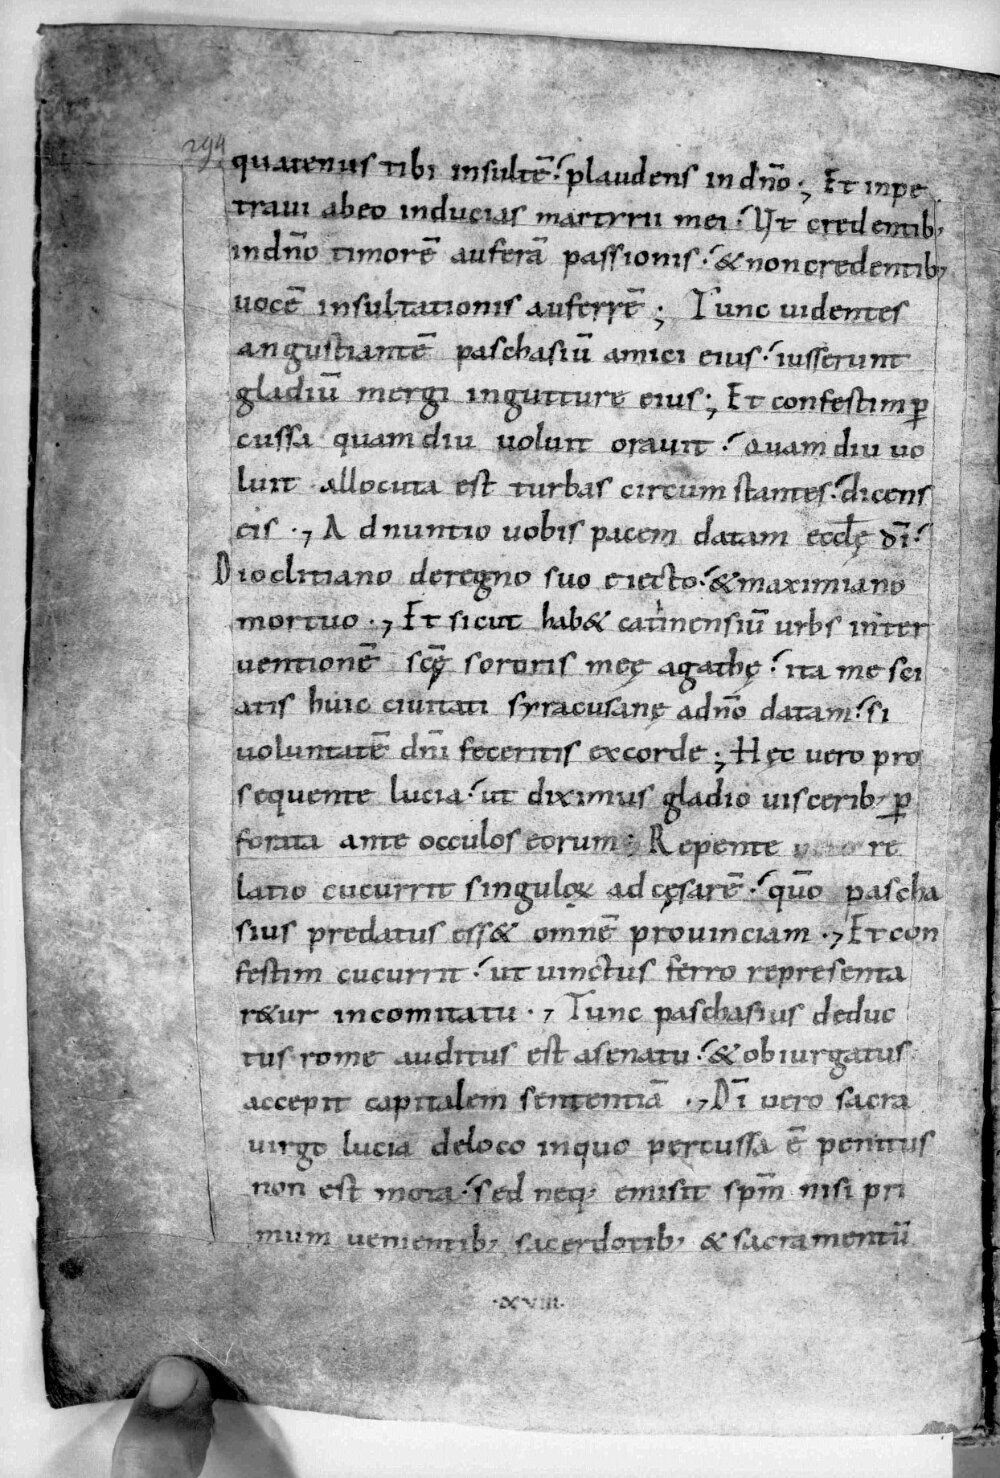 294
quatenus tibi insultē ؛ plaudens in dn̄o ; Et inpe
traui ab eo inducias martyrii mei ؛ Ut credentib;
in dn̄o timorē auferā passionis ؛ & non credentib;
uocē insultationis auferrē ; Tunc uidentes
angustiantē paschasiū amici eius ؛ iusserunt
gladiū mergi in gutture eius ; Et confestim ꝑ
cussa quam diu uoluit orauit ؛ Quam diu uo
luit allocuta est turbas circum stantes ؛ dicens
eis ., Adnuntio uobis pacem datam eccłę dī ؛
Dioclitiano de regno suo eiecto ؛ & maximiano
mortuo ., Et sicut hab& catinensiū urbs inter
uentionē scę̄ sororis meę agathę ؛ ita me sci
atis huic ciuitati syracusanę a dn̄o datam ؛ si
uoluntatē dn̄i feceritis ex corde ; Hęc uero pro
sequente lucia ؛ ut diximus gladio uiscerib; ꝑ
forata ante occulos eorum ; Repente re
latio cucurrit singuloꝝ ad cęsarē ؛ quō pascha
sius predatus ess& omnē prouinciam ., Et con
festim cucurrit ؛ ut uinctus ferro representa
r&ur in comitatu ., Tunc paschasius deduc
tus rome auditus est a senatu ؛ & obiurgatus
accepit capitalem sententiā ., Dī uero sacra
uirgo lucia de loco in quo percussa ē penitus
non est mota ؛ sed neq; emisit sp̄m nisi pri
mum uenientib; sacerdotib; & sacramentū
·xviii·